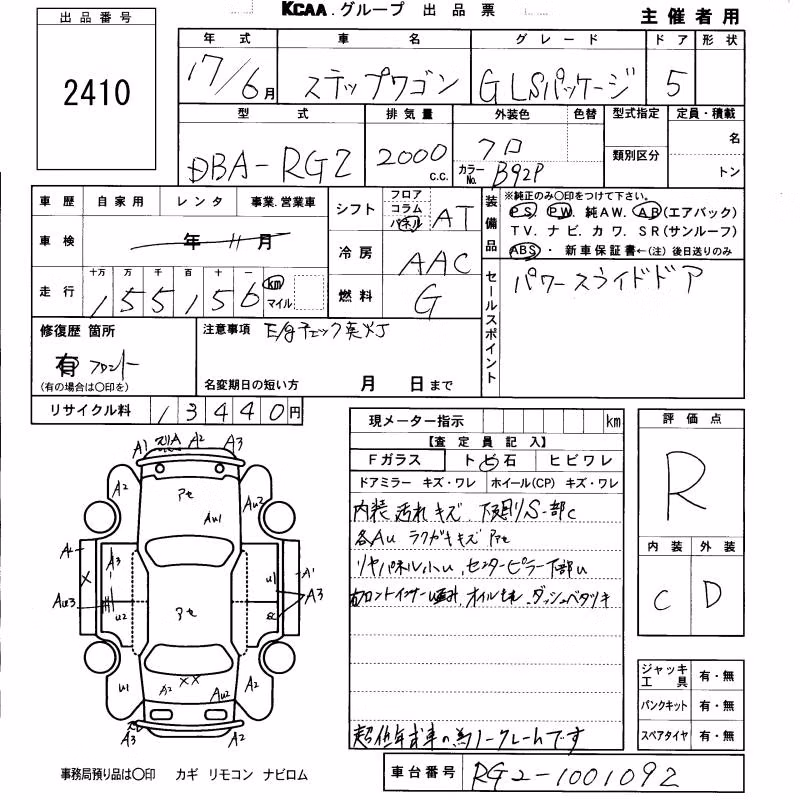 KCAA.グループ 出品票
主催者用
出品番号
2410
年式 車名 グレード ドア 形状
17/6月 ステップワゴン G LSパッケージ 5
型式 排気量 外装色 色替 型式指定 定員・積載
DBA-RG2 2000 c.c. クロ 類別区分 名
カラーNo. B92P トン
車歴 自家用 レンタ 事業.営業車
車検 年 11月
走行 十万 万 千 百 十 一
155156 km マイル
シフト フロア コラム パネル AT
冷房 AAC
燃料 G
装備品 ※純正のみ〇印をつけて下さい。
PS. PW. 純AW. AB(エアバック)
TV. ナビ. カワ. SR(サンルーフ)
ABS・新車保証書←(注)後日送りのみ
セールスポイント パワースライドドア
修復歴 箇所
有 フロント
(有の場合は〇印を)
注意事項 E/gチェック点灯
名変期日の短い方 月 日まで
リサイクル料 13440円
現メーター指示 km
【査定員記入】
Fガラス トビ石 ヒビワレ
ドアミラー キズ・ワレ ホイール(CP) キズ・ワレ
内装 汚れ キズ. 下廻りS一部C
各AU ラクガキキズ アセ
リヤパネル小U. センターピラー下部U
オイルモレ. ダッシュベタツキ
超低年式車の為ノークレームです
評価点
R
内装 外装
C D
ジャッキ 工具 有・無
パンクキット 有・無
スペアタイヤ 有・無
車台番号 RG2-1001092
A1 A2 A3
A2 アセ AU2
AU1
A2 A3 U1 A1
X
AU3 U2 アセ SC A3
U1 A2 XX AU2 A2
A3 A2
事務局預り品は〇印 カギ リモコン ナビロム